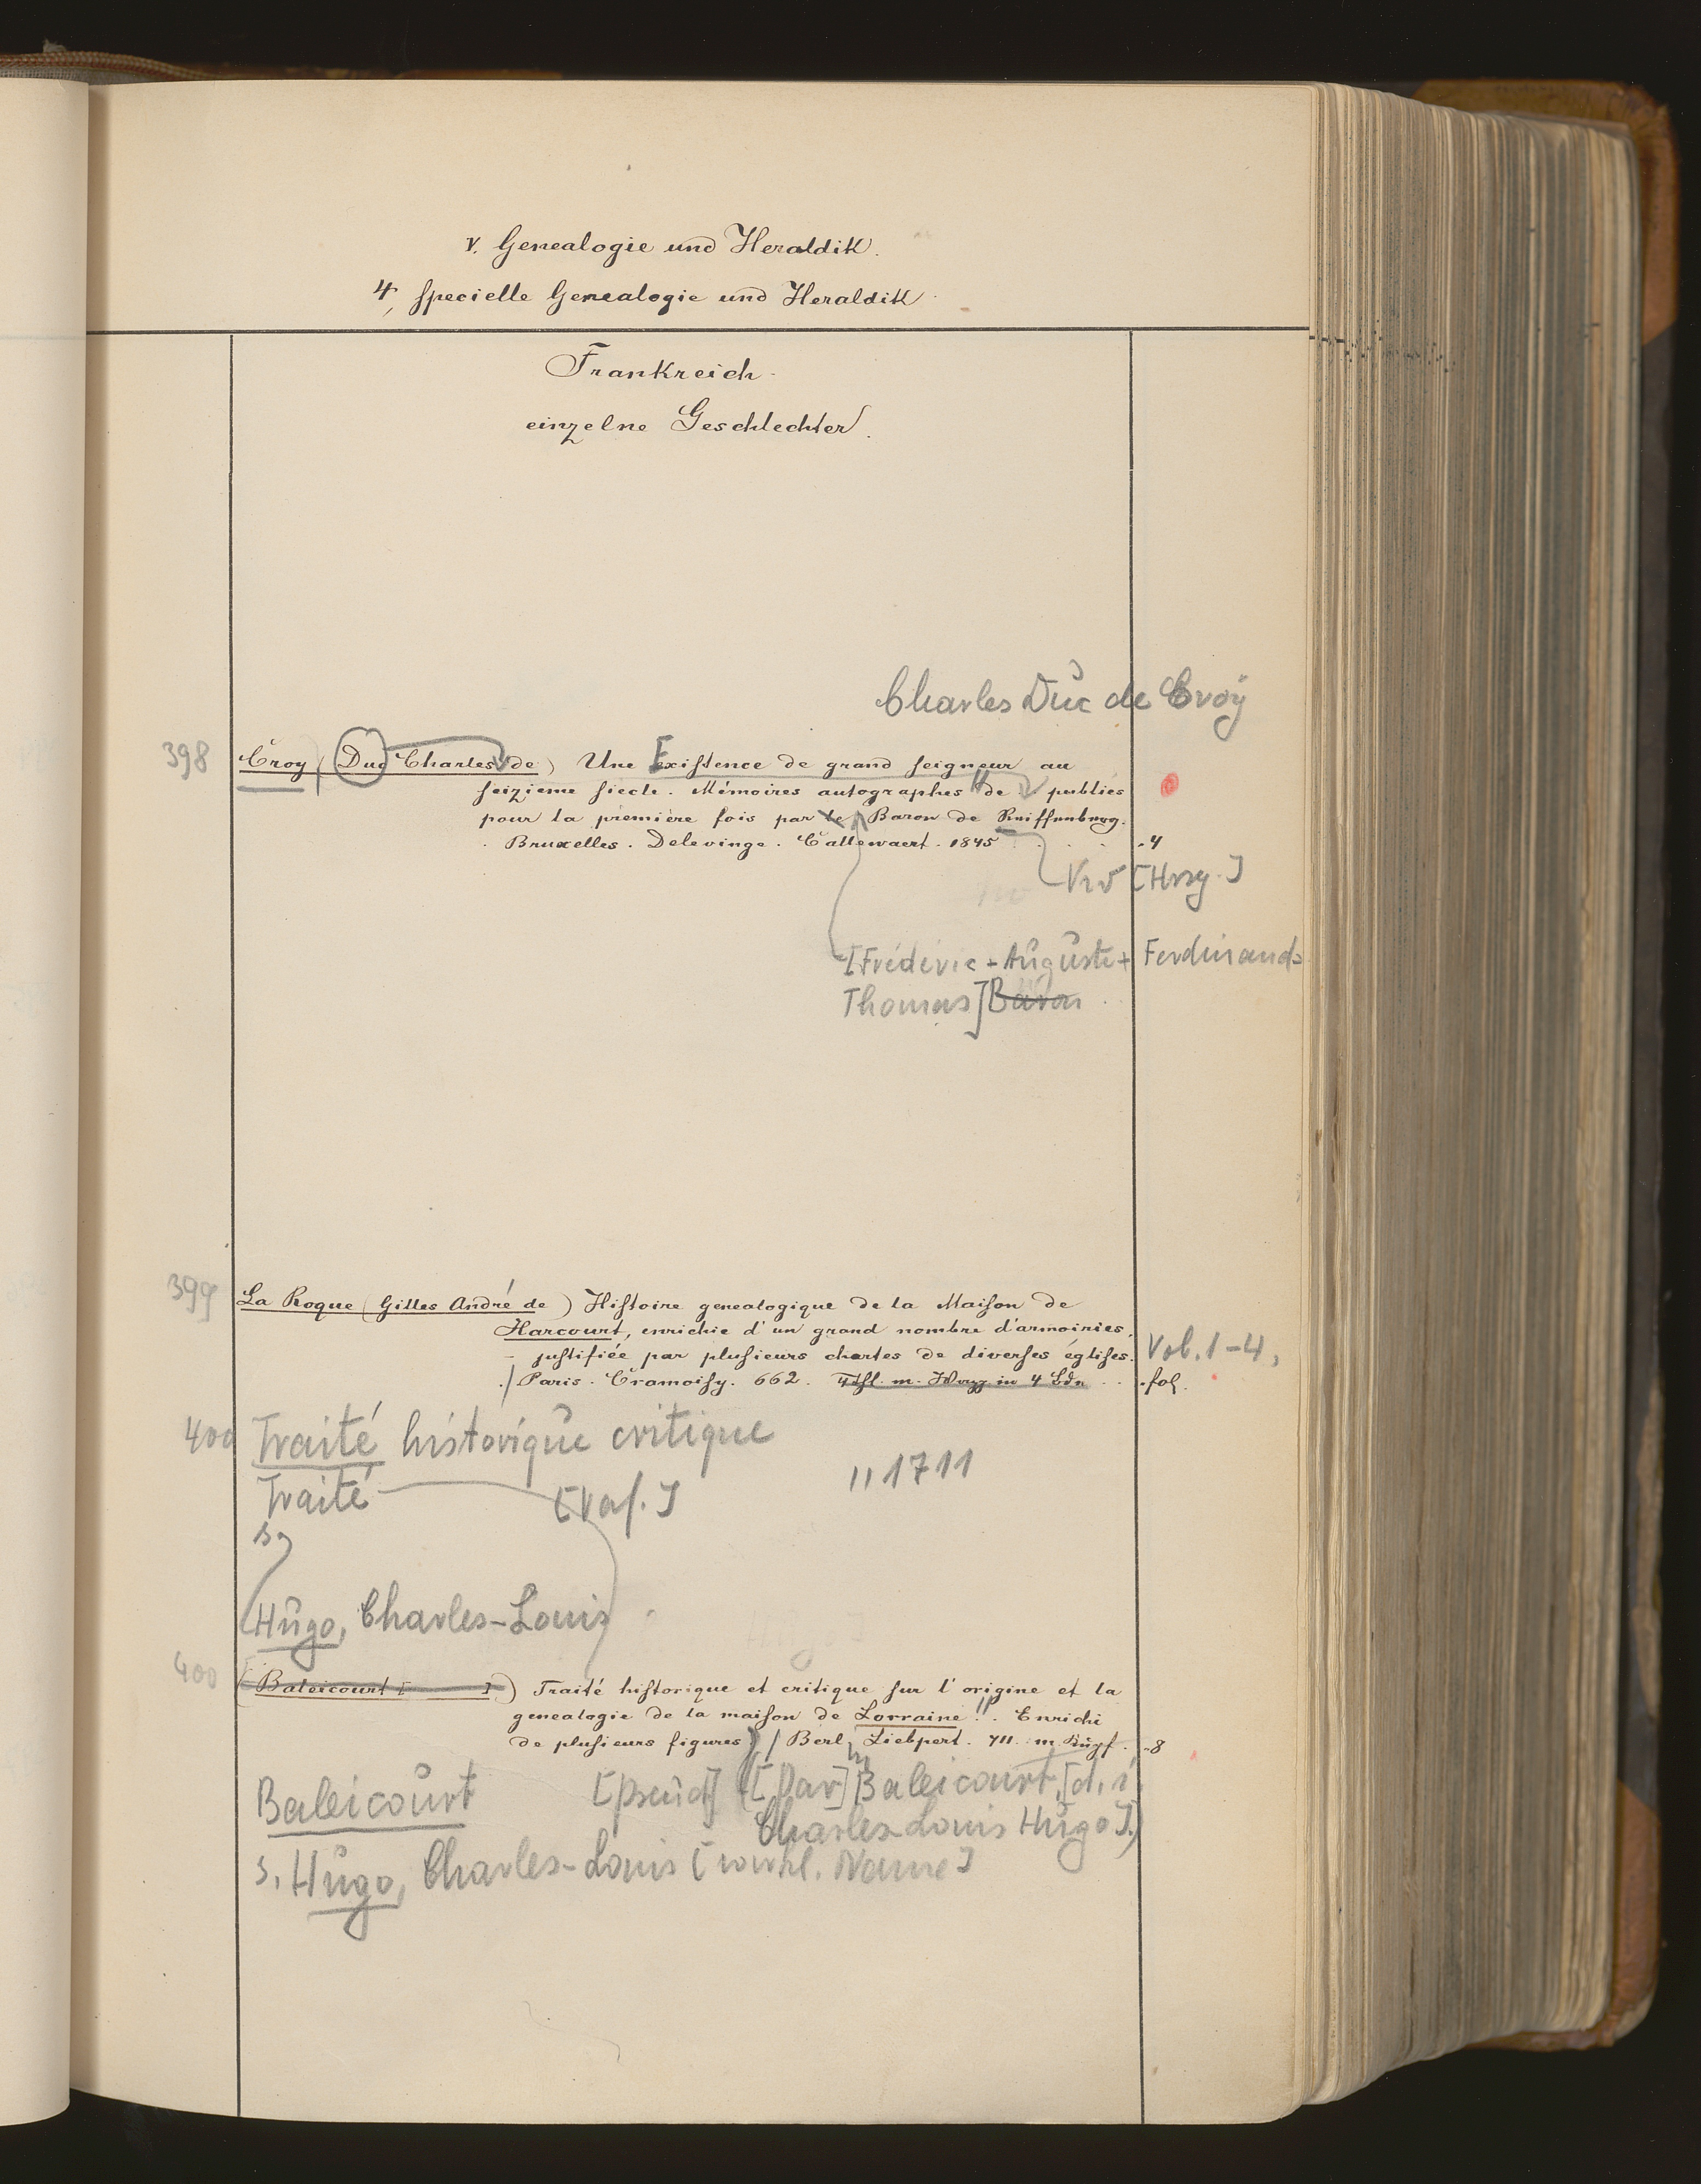 V. Genealogie und Heraldik.
4, specielle Genealogie und Heraldik
Frankreich.
einzelne Geschlechter.
Charles Duc de Croÿ
398 Croy (Duc Charles de) Une Existence de grand seigneur au
seizieme siecle. Mémoires autographes de publiés
pour la première fois par le Baron de Reiffenberg.
Bruxelles. Delevinge. Callewaert. 1845 4
[Hrsg.]
[Frédéric-Auguste-Ferdinand-
Thomas] Baron
399 La Roque (Gilles André de) Histoire genealogique de la Maison de
Harcourt, enrichie d'un grand nombre d'armoiries,
justifiée par plusieurs chartes de diverses églises. Vol. 1-4,
Paris. Cramoisy. 662. 4 Thl. m. Wapp in 4 Bdn fol.
400 Traité historique critique
Traité [Vaf.] 1711
s.
Hugo, Charles-Louis
400 (Baleicourt [ ]) Traité historique et critique sur l'origine et la
genealogie de la maison de Lorraine. Enrichi
de plusieurs figures) / Berl, Liebpert. 711. m. Kupf. 8
Baleicourt [Pseud] ([Par] Baleicourt, [d. i.
Charles-Louis Hugo].)
s. Hugo, Charles-Louis [wirkl. Name]